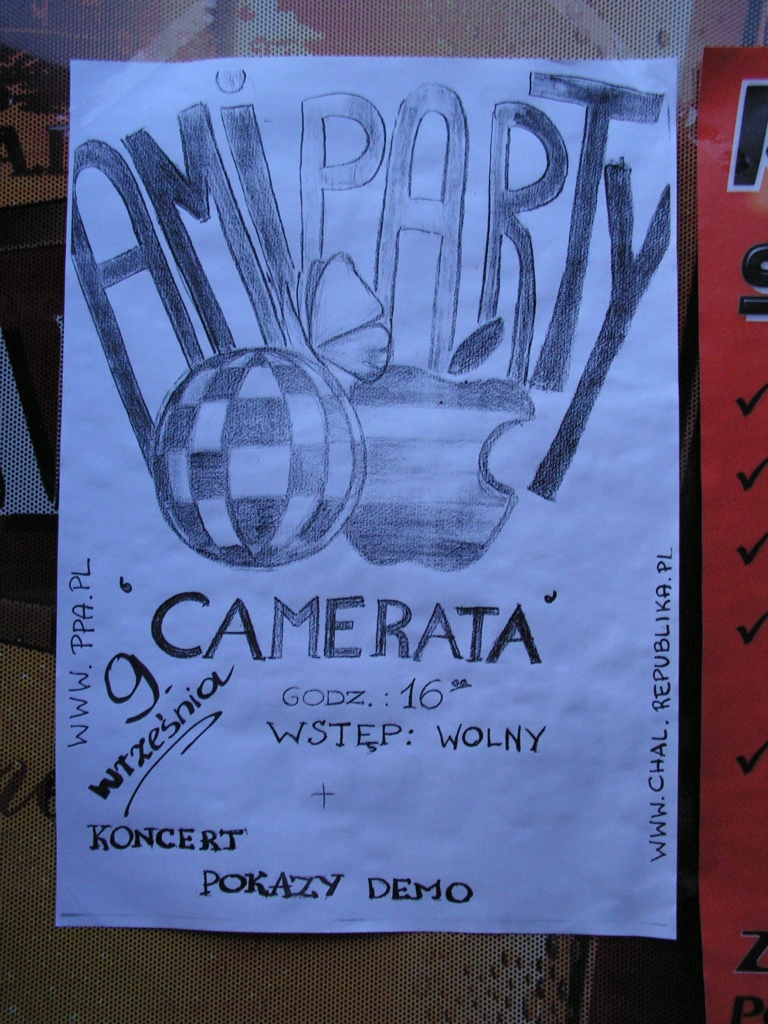 AMiPARTY
"CAMERATA"
9. września
GODZ.: 16⁰⁰
WSTĘP: WOLNY
+
KONCERT
POKAZY DEMO
WWW.PPA.PL
WWW.CHAL.REPUBLIKA.PL